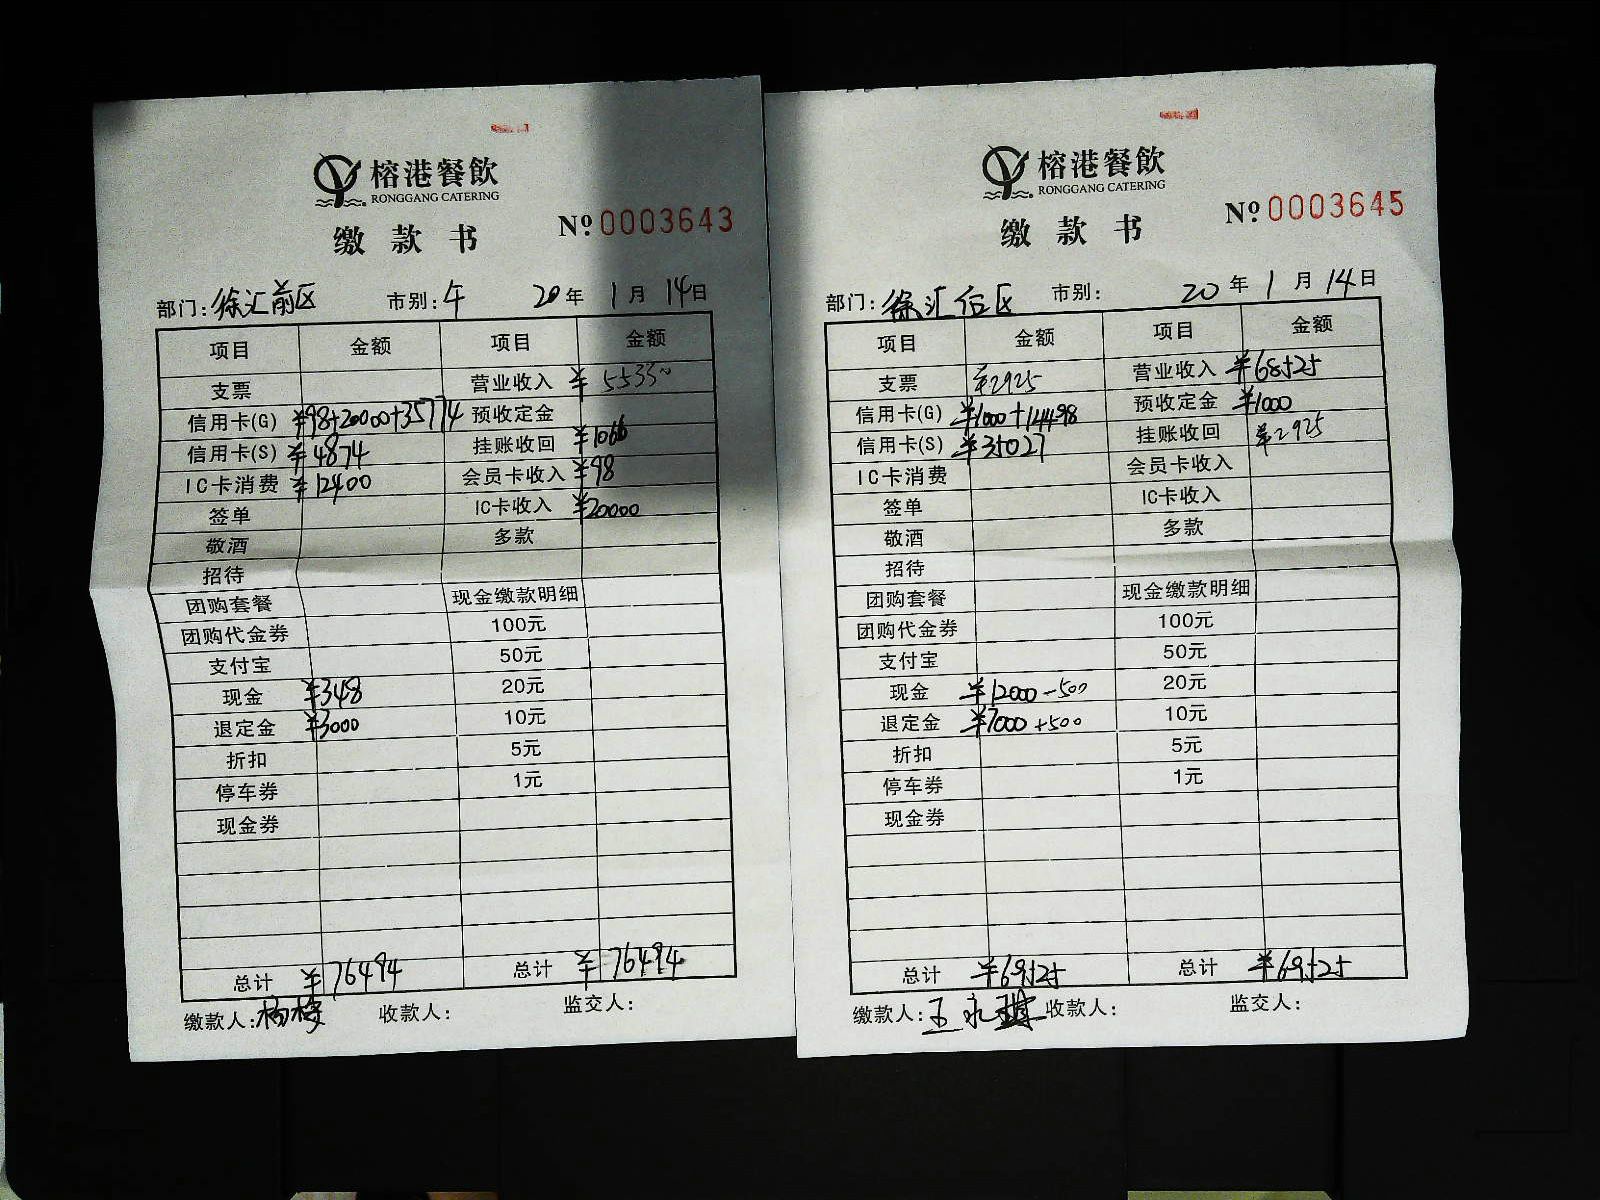 榕港餐飲
RONGGANG CATERING
缴款书
Nº 0003643
部门: 徐汇前区 市别: 午 20年 1月 14日
项目 金额 项目 金额
支票 营业收入 ¥ 5533~
信用卡(G) ¥98+20000+35774 预收定金
信用卡(S) ¥4874 挂账收回 ¥1066
IC卡消费 ¥12400 会员卡收入 ¥98
签单 IC卡收入 ¥20000
敬酒 多款
招待
团购套餐 现金缴款明细
团购代金券 100元
支付宝 50元
现金 ¥348 20元
退定金 ¥3000 10元
折扣 5元
停车券 1元
现金券
总计 ¥76494 总计 ¥76494
缴款人: 收款人: 监交人:
榕港餐飲
RONGGANG CATERING
缴款书
Nº 0003645
部门: 徐汇后区 市别: 20年 1月 14日
项目 金额 项目 金额
支票 ¥2925 营业收入 ¥68525
信用卡(G) ¥1000+14498 预收定金 ¥1000
信用卡(S) ¥35027 挂账收回 ¥2925
IC卡消费 会员卡收入
签单 IC卡收入
敬酒 多款
招待
团购套餐 现金缴款明细
团购代金券 100元
支付宝 50元
现金 ¥12000-500 20元
退定金 ¥7000+500 10元
折扣 5元
停车券 1元
现金券
总计 ¥69525 总计 ¥69525
缴款人: 王永琪 收款人: 监交人: